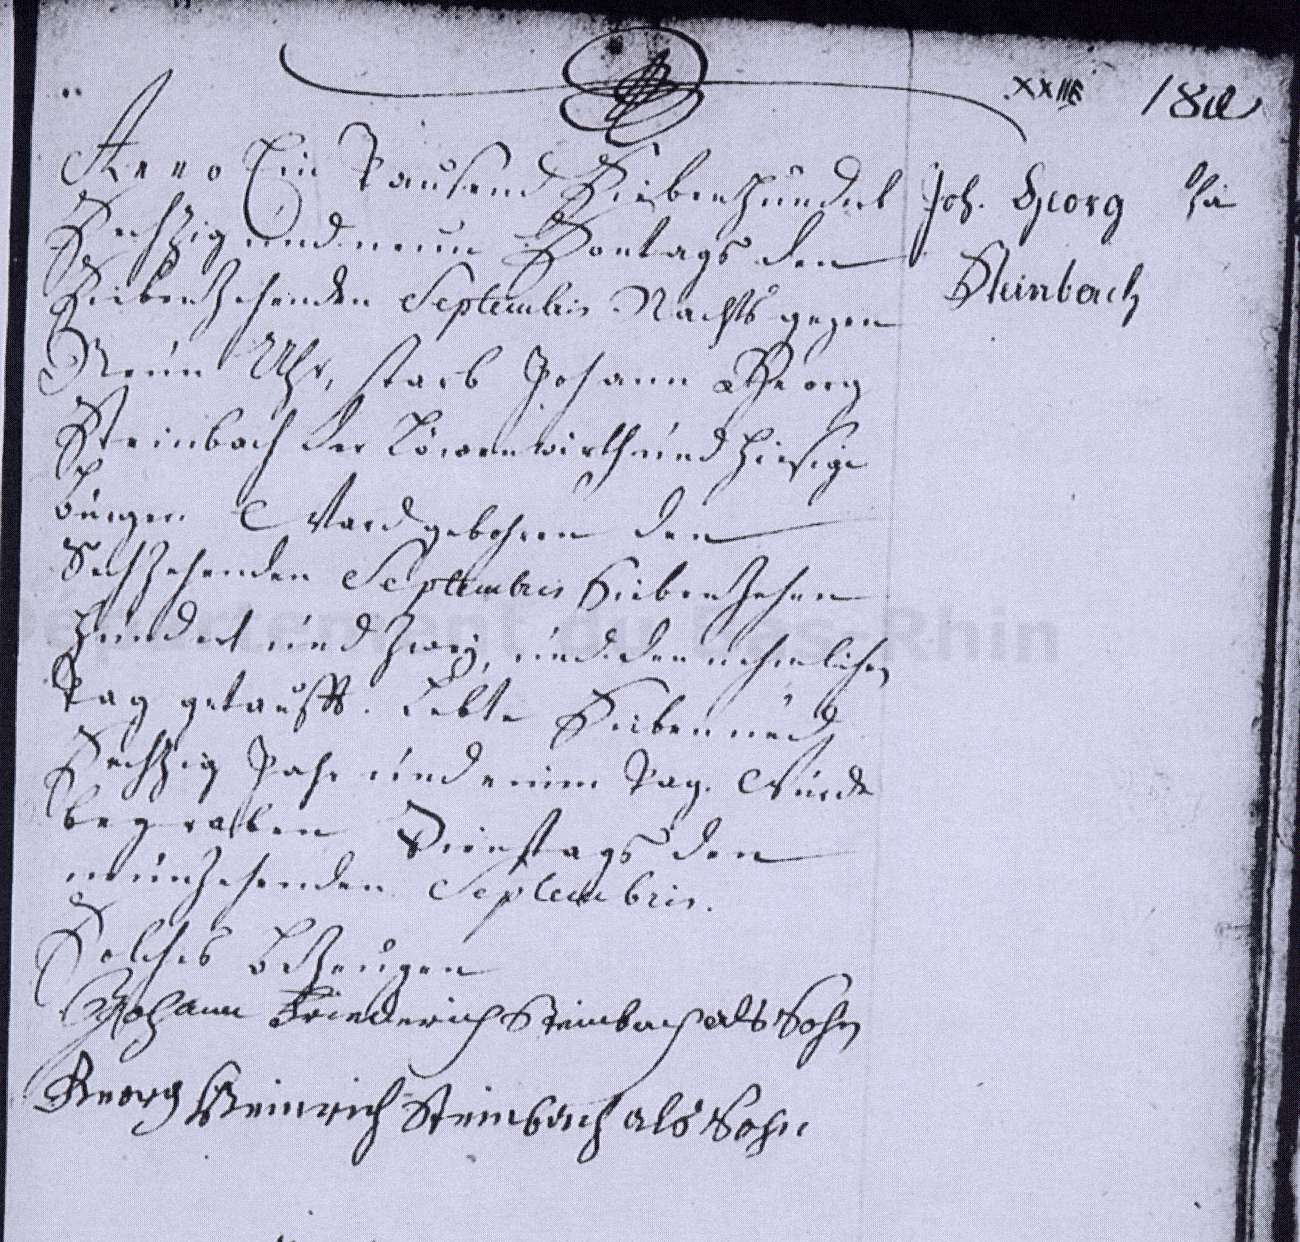 XXIII
Anno Ein Tausend Siebenhundert
Sechzig und neun Sontags den
Siebenzehenden Septembris Nachts gegen
Neün Uhr, starb Johann Georg
Steinbach der Löwenwirth und hiesige
bürger. Ward gebohren den
Sechzehenden Septembris Siebenzehen
hundert und zwey, und den nehmlichen
Tag getaufft. Lebte Sieben und
Sechzig Jahr und einen Tag. Wurde
begraben Dienstags den
neünzehenden Septembris.
Solches bezeugen
Johann Friederich Steinbach als Sohn
Georg Heinrich Steinbach als Sohn
Joh. Georg
Steinbach
Département du Bas-Rhin